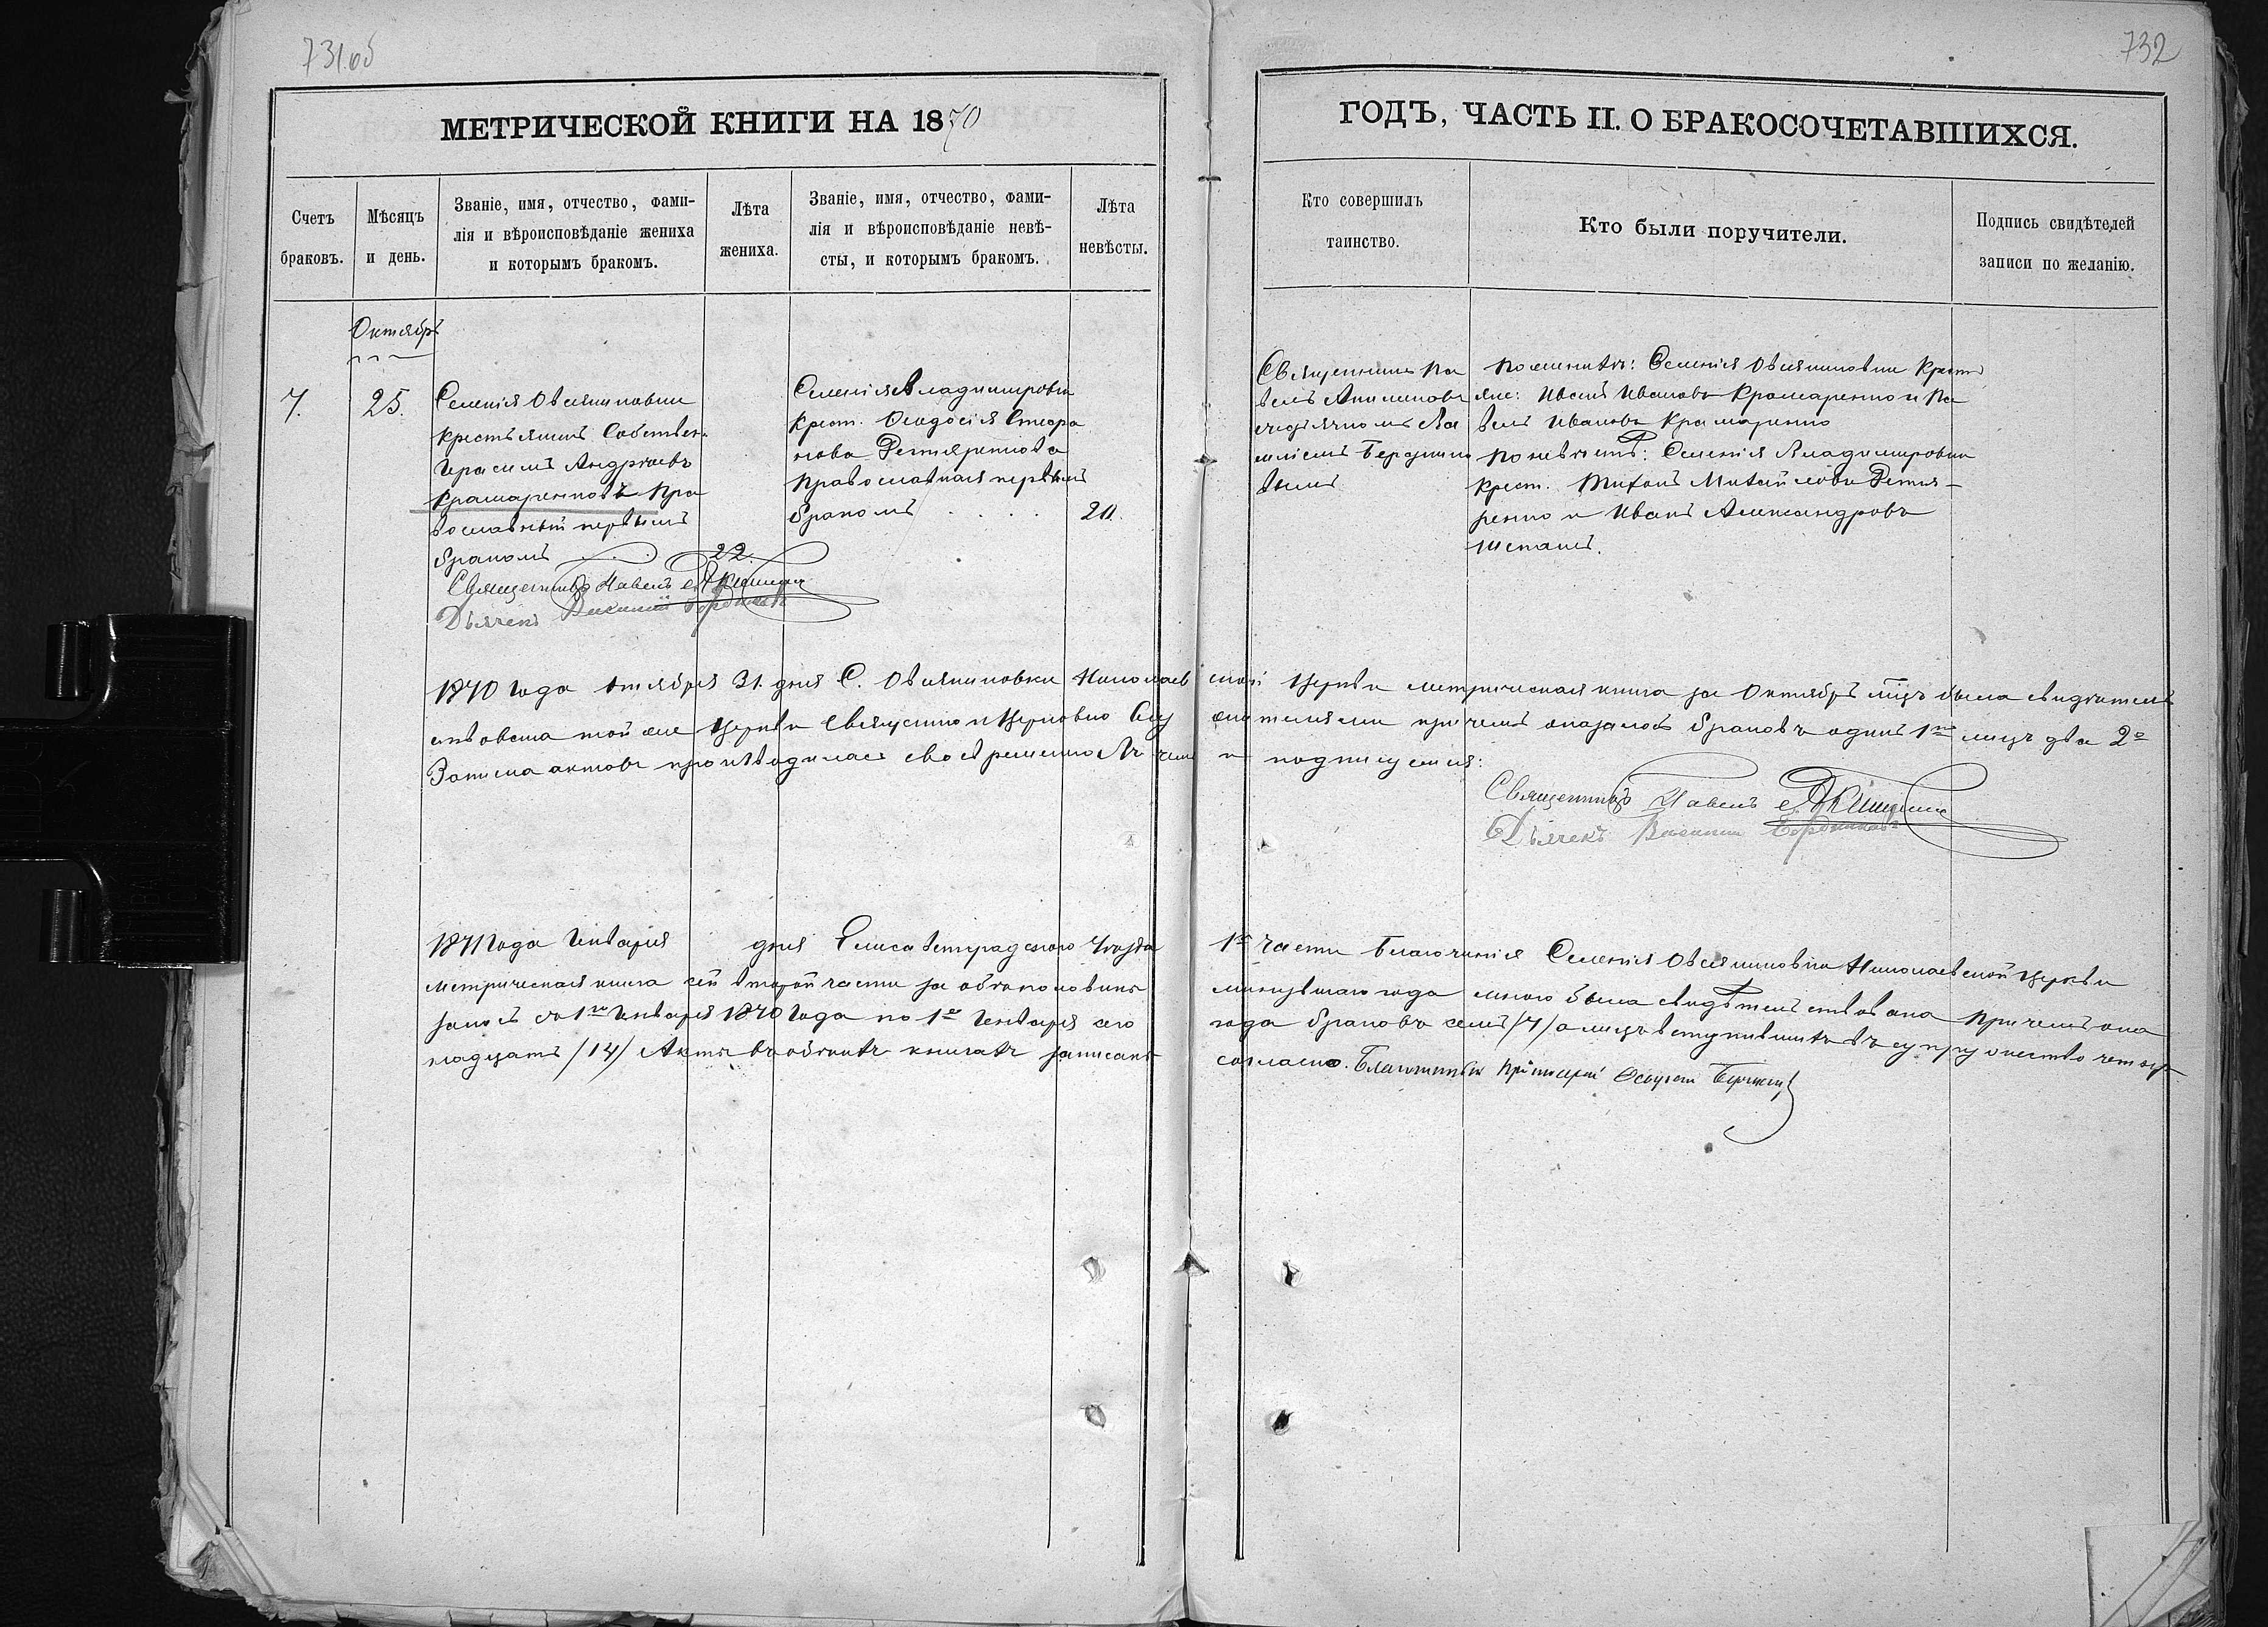 731.об
732
МЕТРИЧЕСКОЙ КНИГИ НА 1870
ГОДЪ, ЧАСТЬ II. О БРАКОСОЧЕТАВШИХСЯ.
Счетъ
браковъ.
Мѣсяцъ
и день.
Званіе, имя, отчество, фами-
лія и вѣроисповѣданіе жениха
и которымъ бракомъ.
Лѣта
жениха.
Званіе, имя, отчество, фами-
лія и вѣроисповѣданіе невѣ-
сты, и которымъ бракомъ.
Лѣта
невѣсты.
Кто совершилъ
таинство.
Кто были поручители.
Подпись свидѣтелей
записи по желанію.
Октябрь
7.
25.
Селенія Овсяниковки
крестьянинъ Собствен.
Герасимъ Андреевъ
Крамаренковъ Пра
вославный первымъ
бракомъ
22.
Селенія Владимировки
крест. Феодосія Стефа
нова Дегтяренкова
православная первымъ
бракомъ . . . .
20.
Священникъ Па
велъ Акимовъ
съ дьячкомъ Ва
силіемъ
вымъ
По женихѣ: Селенія Овсяниковки Кресть
яне: Иванъ Ивановъ Крамаренко и Па
велъ Ивановъ Крамаренко
По невѣстѣ: Селенія Владимировки
Крест. Тихонъ Михайловъ Дегтя-
ренко и Иванъ Александровъ
Священникъ Павелъ
Дьячекъ Василий
1870 года октября 31. дня С. Овсяниковки Николаев ской Церкви метрическая книга за Октябрь мцъ была свидѣтель
ствована той же Церкви Священно и Церковно Слу жителями при чемъ оказалось браковъ одинъ 1 лицъ два 2
Записка актовъ производилась своевременно въ чемъ и подписуемся:
Священникъ Павелъ
Дьячекъ Василий
1871 года Генваря дня Елисаветградского Уезда 1й части Благочинія Селенія Овсяниковки Николаевской Церкви
метрическая книга сей второй части за обѣ половины минувшаго года мною была свидѣтельствована при чемъ ока
залось съ 1го Генваря 1870 года по 1е Генваря сего года браковъ семь /7/ а лицъ вступившихъ въ супружество четыр
надцать /14/ Акты въ обѣихъ книгахъ записаны согласно. Благочинный Протоіерей